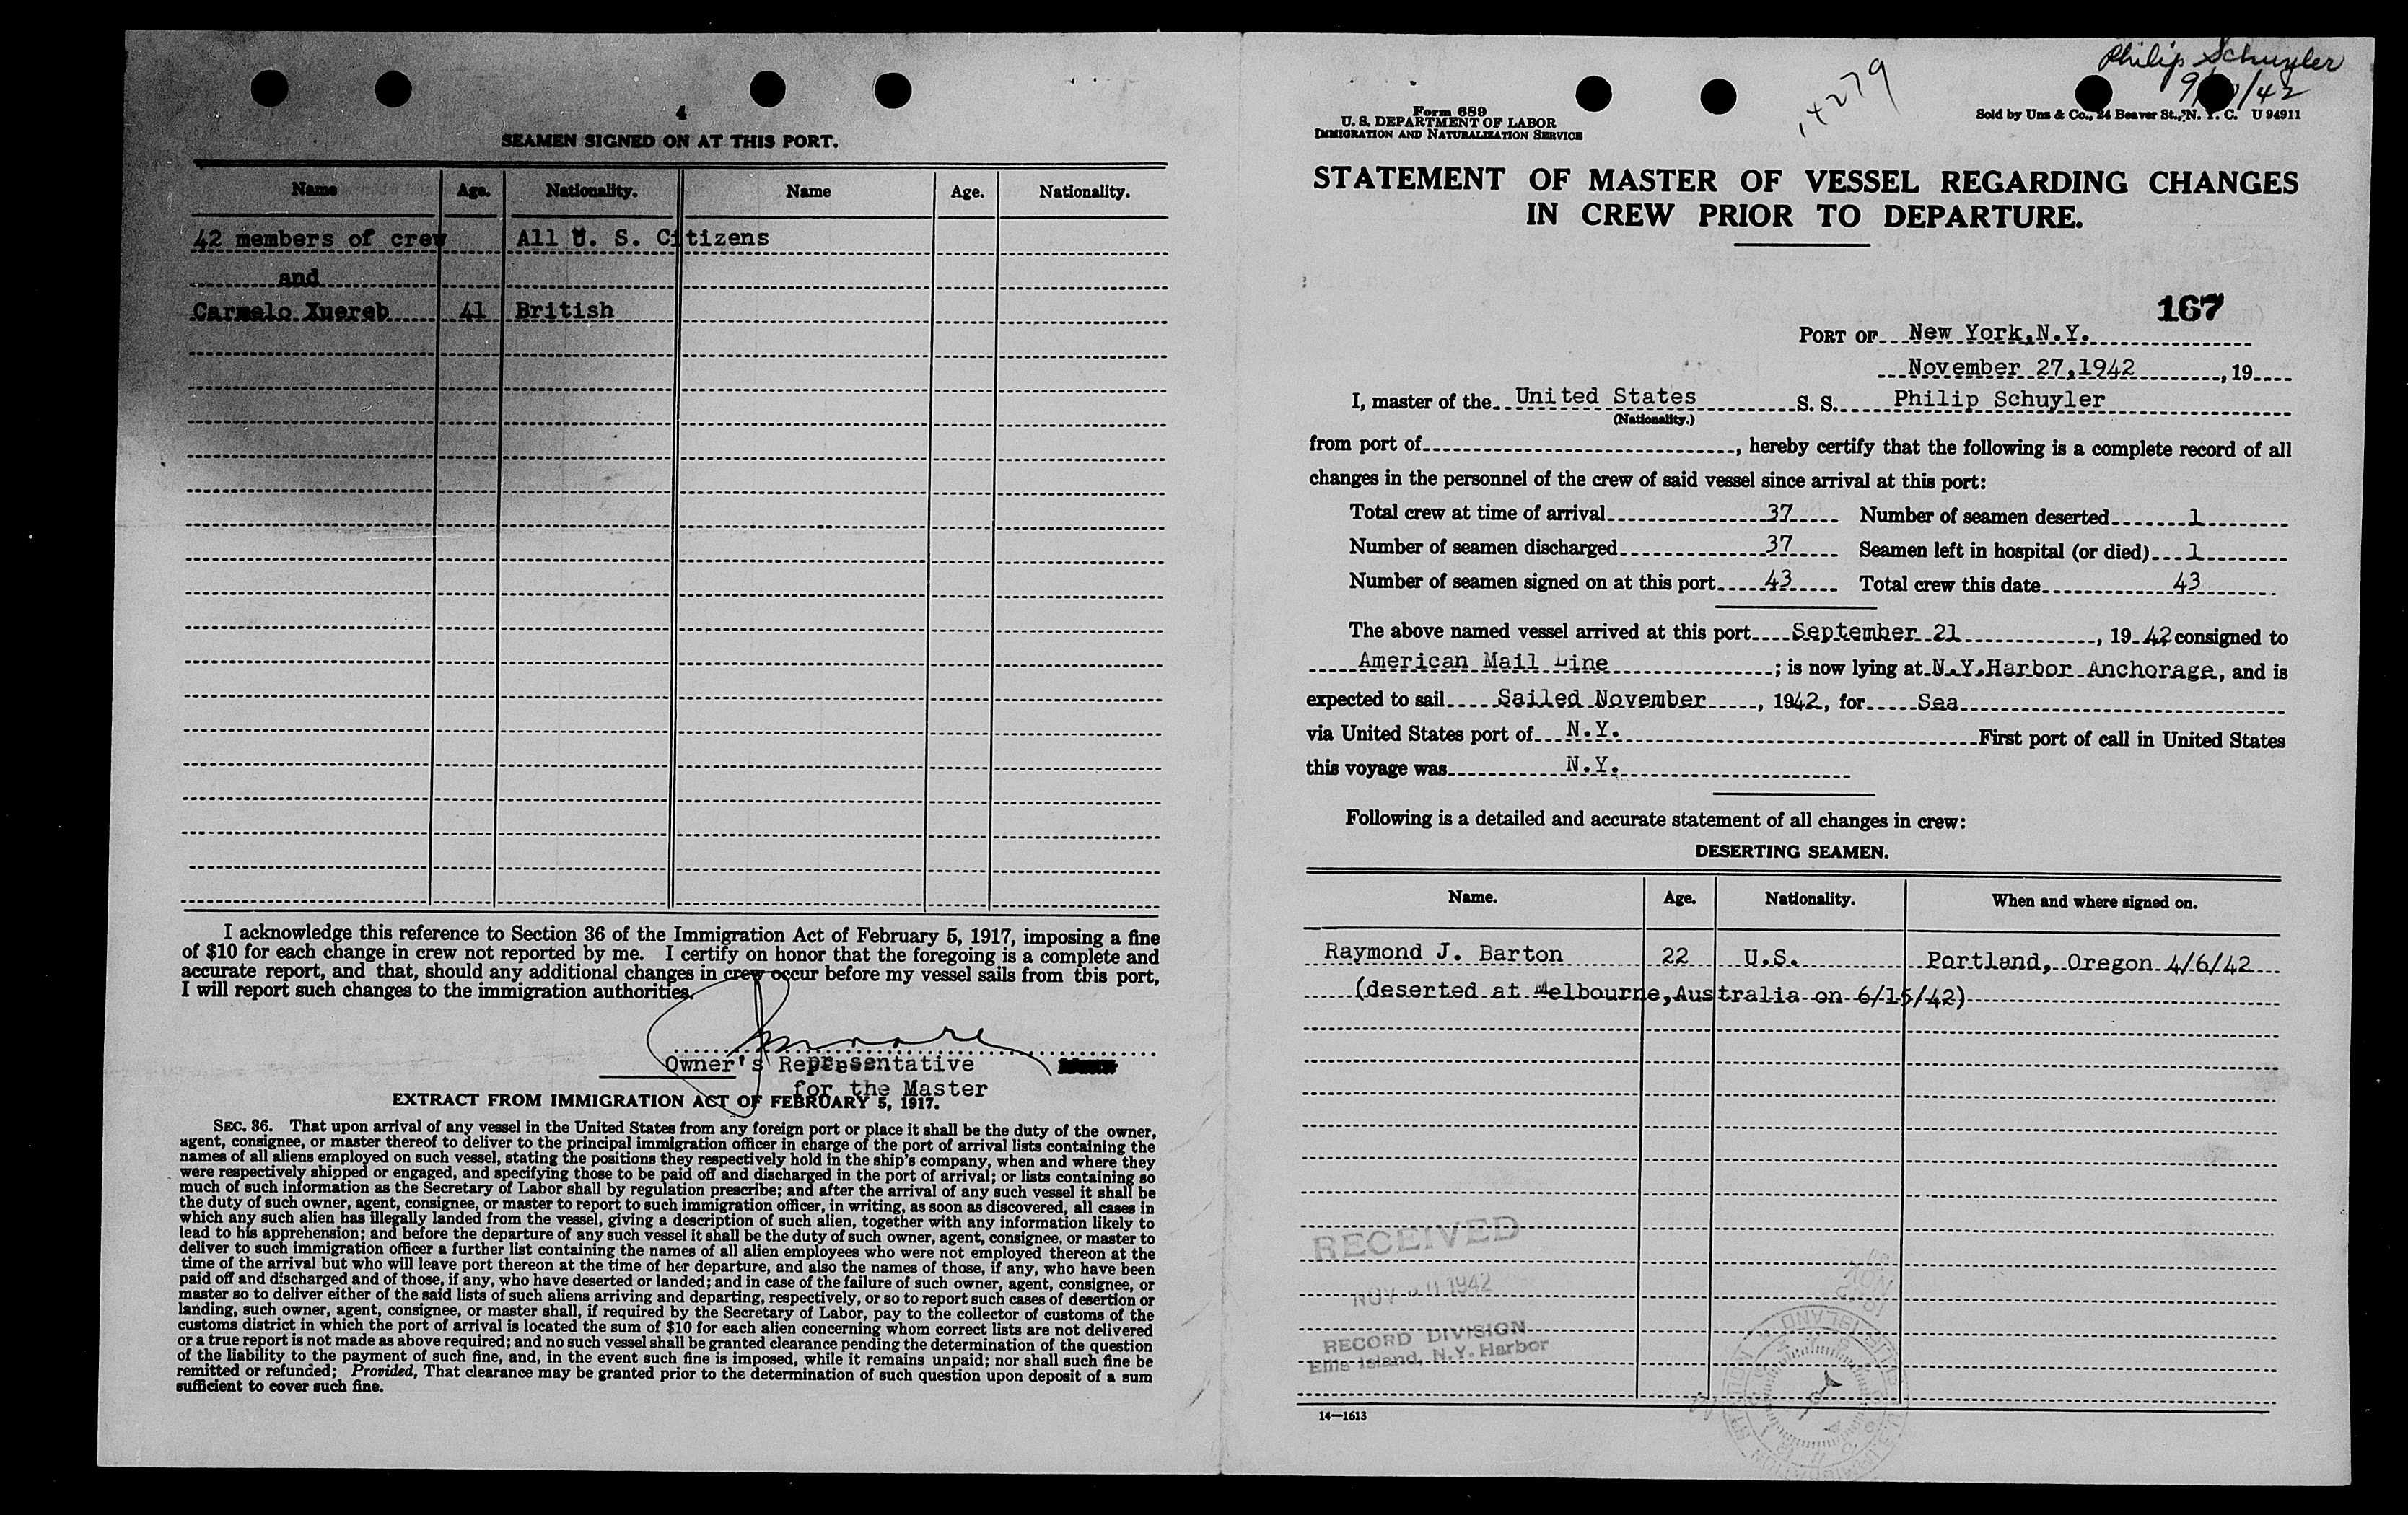 4
SEAMEN SIGNED ON AT THIS PORT.
Name Age. Nationality. Name Age. Nationality.
42 members of crew All U. S. Citizens
and
Carmelo Xuereb 41 British
I acknowledge this reference to Section 36 of the Immigration Act of February 5, 1917, imposing a fine
of $10 for each change in crew not reported by me. I certify on honor that the foregoing is a complete and
accurate report, and that, should any additional changes in crew occur before my vessel sails from this port,
I will report such changes to the immigration authorities.
Owner's Representative
for the Master
EXTRACT FROM IMMIGRATION ACT OF FEBRUARY 5, 1917.
SEC. 36. That upon arrival of any vessel in the United States from any foreign port or place it shall be the duty of the owner,
agent, consignee, or master thereof to deliver to the principal immigration officer in charge of the port of arrival lists containing the
names of all aliens employed on such vessel, stating the positions they respectively hold in the ship's company, when and where they
were respectively shipped or engaged, and specifying those to be paid off and discharged in the port of arrival; or lists containing so
much of such information as the Secretary of Labor shall by regulation prescribe; and after the arrival of any such vessel it shall be
the duty of such owner, agent, consignee, or master to report to such immigration officer, in writing, as soon as discovered, all cases in
which any such alien has illegally landed from the vessel, giving a description of such alien, together with any information likely to
lead to his apprehension; and before the departure of any such vessel it shall be the duty of such owner, agent, consignee, or master to
deliver to such immigration officer a further list containing the names of all alien employees who were not employed thereon at the
time of the arrival but who will leave port thereon at the time of her departure, and also the names of those, if any, who have been
paid off and discharged and of those, if any, who have deserted or landed; and in case of the failure of such owner, agent, consignee, or
master so to deliver either of the said lists of such aliens arriving and departing, respectively, or so to report such cases of desertion or
landing, such owner, agent, consignee, or master shall, if required by the Secretary of Labor, pay to the collector of customs of the
customs district in which the port of arrival is located the sum of $10 for each alien concerning whom correct lists are not delivered
or a true report is not made as above required; and no such vessel shall be granted clearance pending the determination of the question
of the liability to the payment of such fine, and, in the event such fine is imposed, while it remains unpaid; nor shall such fine be
remitted or refunded; Provided, That clearance may be granted prior to the determination of such question upon deposit of a sum
sufficient to cover such fine.
Philip Schuyler
14279
Form 689
U. S. DEPARTMENT OF LABOR
IMMIGRATION AND NATURALIZATION SERVICE
Sold by Unz & Co., 24 Beaver St., N. Y. C. U 94911
STATEMENT OF MASTER OF VESSEL REGARDING CHANGES
IN CREW PRIOR TO DEPARTURE.
167
PORT OF New York,N.Y.
November 27,1942, 19
I, master of the United States S. S. Philip Schuyler
(Nationality.)
from port of , hereby certify that the following is a complete record of all
changes in the personnel of the crew of said vessel since arrival at this port:
Total crew at time of arrival 37 Number of seamen deserted 1
Number of seamen discharged 37 Seamen left in hospital (or died) 1
Number of seamen signed on at this port 43 Total crew this date 43
The above named vessel arrived at this port September 21, 19 42 consigned to
American Mail Line ; is now lying at N.Y.Harbor Anchorage, and is
expected to sail Sailed November, 1942, for Sea
via United States port of N.Y. First port of call in United States
this voyage was N.Y.
Following is a detailed and accurate statement of all changes in crew:
DESERTING SEAMEN.
Name. Age. Nationality. When and where signed on.
Raymond J. Barton 22 U.S. Portland, Oregon 4/6/42
(deserted at Melbourne,Australia on 6/15/42)
RECEIVED
NOV 1942
RECORD DIVISION
Ellis Island, N.Y. Harbor
14—1613